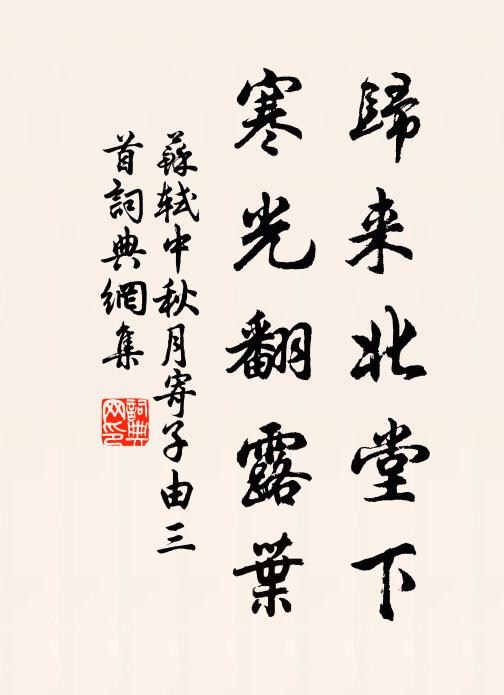 歸来北堂下
寒光翻露葉
蘇軾中秋月寄子由三
首詞典網集
詞典
网印